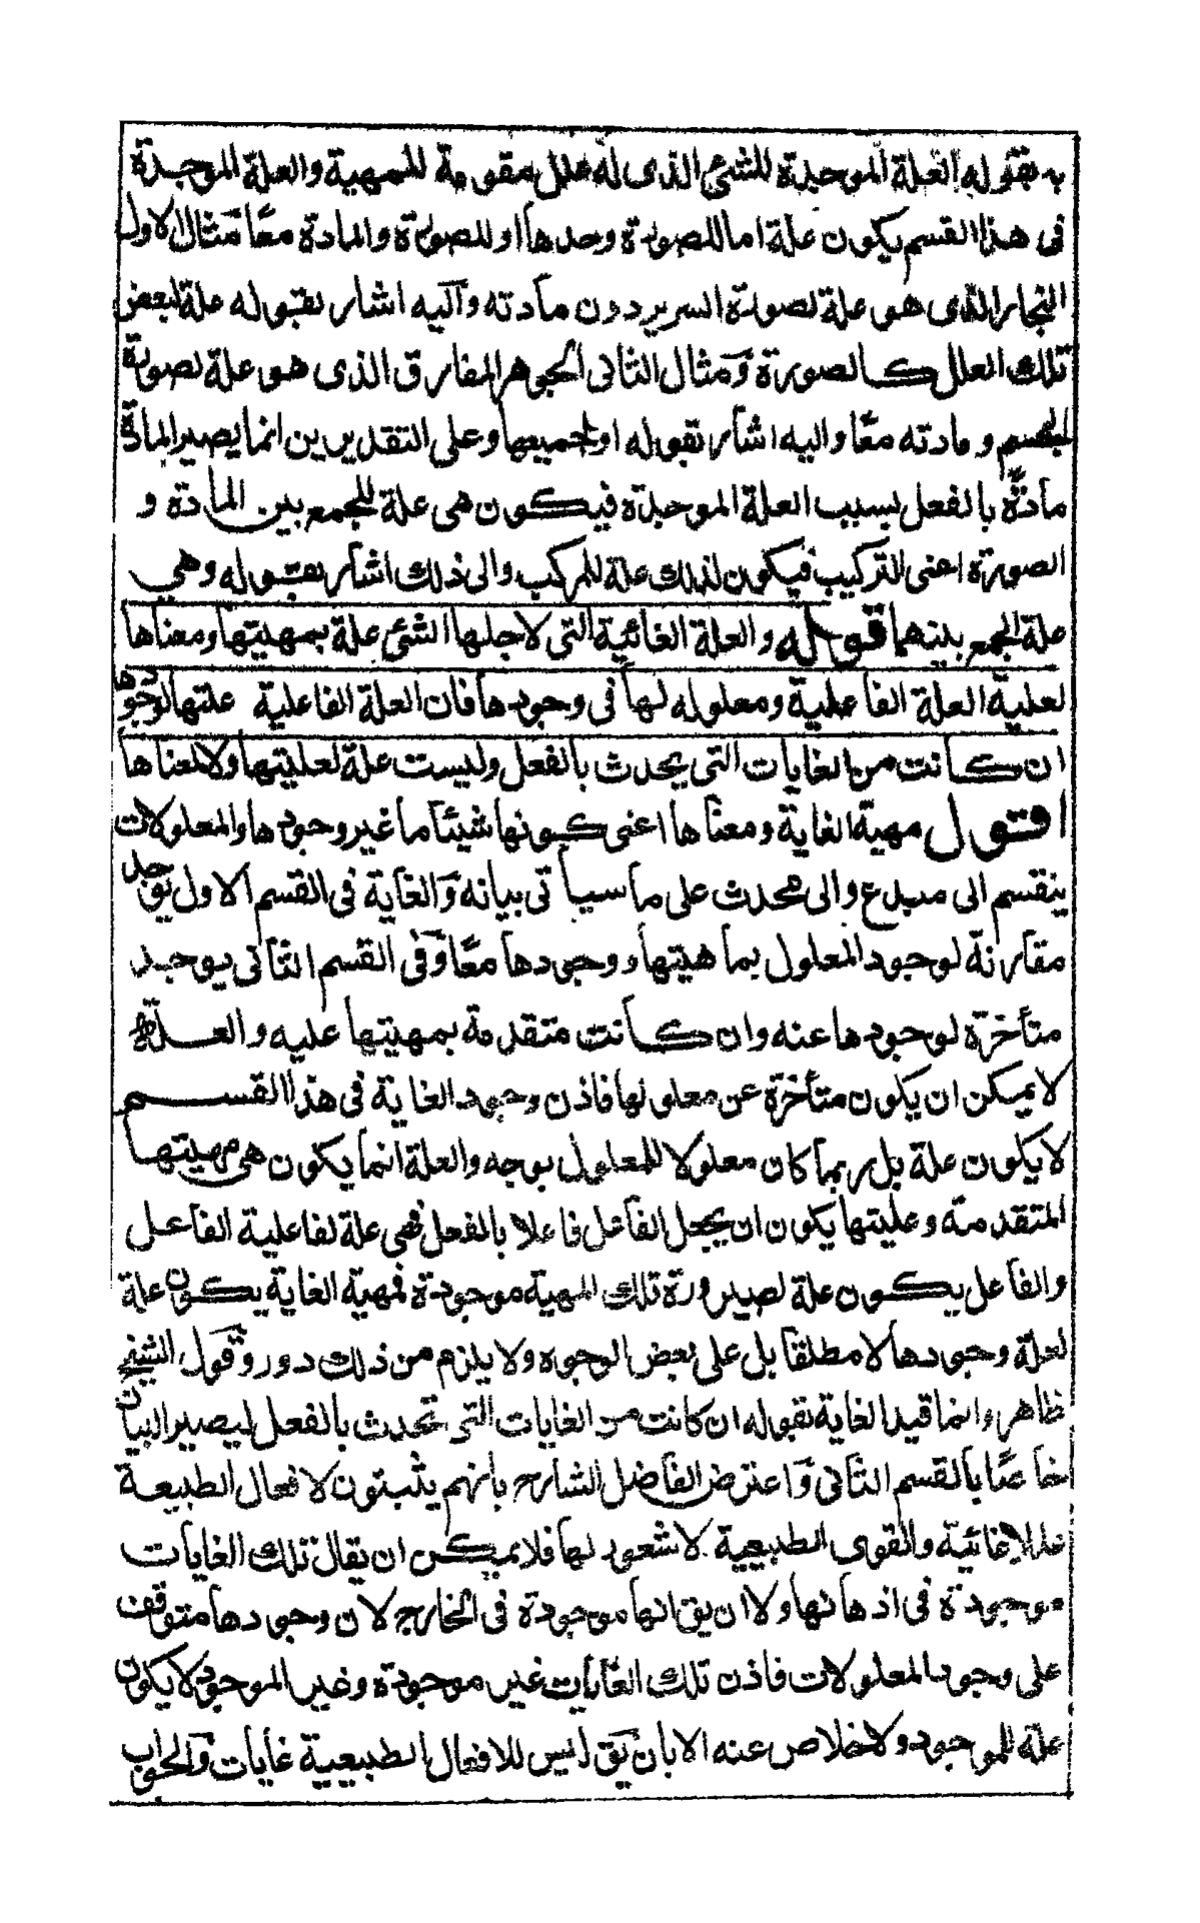 به بقوله العلة الموجدة للشئ الذى له علل مقومة للمهية والعلة الموجدة
فى هذا القسم يكون علة اما للصورة وحدها او للصورة والمادة معًا مثال الاول
النجار الذى هو علة لصورة السرير دون مادته واليه اشار بقوله علة لبعض
تلك العلل كالصورة ومثال الثانى الجوهر المفارق الذى هو علة لصورة
الجسم ومادته معًا واليه اشار بقوله او لجميعها وعلى التقديرين انما يصير المادة
مادّة بالفعل بسبب العلة الموجدة فيكون هى علة للجمع بين المادة و
الصورة اعنى التركيب فيكون لذلك علة للمركب والى ذلك اشار بقوله وهى
علة الجمع بينهما قوله والعلة الغائية التى لاجلها الشئ علة بمهيتها ومعناها
لعلية العلة الفاعلية ومعلوله لها فى وجودها فان العلة الفاعلية علتها لوجودها
ان كانت من الغايات التى يحدث بالفعل وليست علة لعليتها ولا لمعناها
اقول مهية الغاية ومعناها اعنى كونها شيئا ما غير وجودها والمعلولات
ينقسم الى مبدع والى محدث على ما سياتى بيانه والغاية فى القسم الاول يوجد
مقارنة لوجود المعلول بماهيتها ووجودها معًا وفى القسم الثانى يوجد
متأخرة لوجودها عنه وان كانت متقدمة بمهيتها عليه والعلة
لا يمكن ان يكون متأخرة عن معلولها فاذن وجود الغاية فى هذا القسم
لا يكون علة بل ربما كان معلولا للمعلول بوجه والعلة انما يكون هى مهيتها
المتقدمة وعليتها يكون ان يجعل الفاعل فاعلا بالفعل فهى علة لفاعلية الفاعل
والفاعل يكون علة لصيرورة تلك المهية موجودة فمهية الغاية يكون علة
لعلة وجودها لا مطلقا بل على بعض الوجوه ولا يلزم من ذلك دور وقول الشيخ
ظاهر وانما قيد الغاية بقوله ان كانت من الغايات التى تحدث بالفعل ليصير البيان
خاصًا بالقسم الثانى واعترض الفاضل الشارح بانهم يثبتون لافعال الطبيعة
عللا غائية والقوى الطبيعية لا شعور لها فلا يمكن ان يقال تلك الغايات
موجودة فى اذهانها ولا ان يق انها موجودة فى الخارج لان وجودها متوقف
على وجود المعلولات فاذن تلك الغايات غير موجودة وغير الموجود لا يكون
علة للموجود ولا خلاص عنه الا بان يق ليس للافعال الطبيعية غايات والجواب